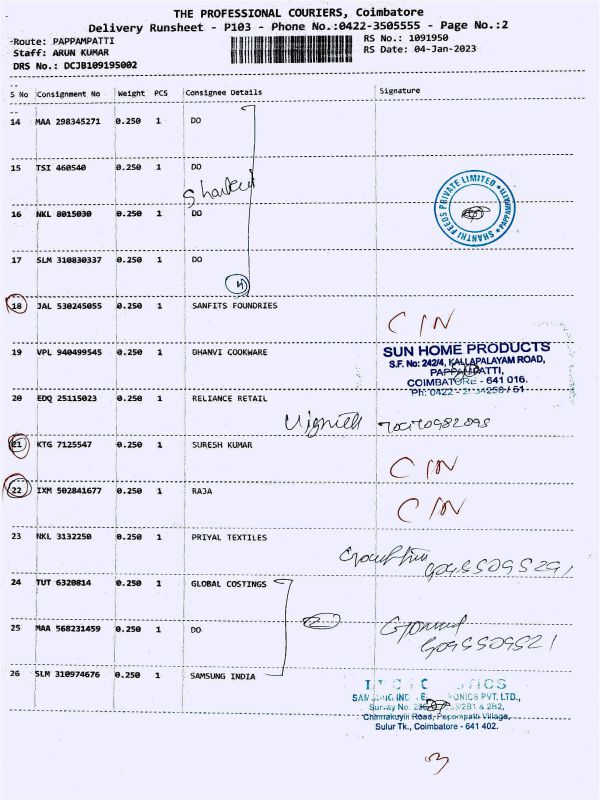 THE PROFESSIONAL COURIERS, Coimbatore
Delivery Runsheet - P103 - Phone No.:0422-3505555 - Page No.:2
Route: PAPPAMPATTI
RS No.: 1091950
Staff: ARUN KUMAR
RS Date: 04-Jan-2023
DRS No.: DCJB109195002
S No Consignment No Weight PCS Consignee Details Signature
14 MAA 298345271 0.250 1 DO
15 TSI 460540 0.250 1 DO
16 NKL 8015030 0.250 1 DO
SHANTHI FEEDS PRIVATE LIMITED
17 SLM 310830337 0.250 1 DO
4
18 JAL 530245055 0.250 1 SANFITS FOUNDRIES
C IN
19 VPL 940499545 0.250 1 DHANVI COOKWARE
SUN HOME PRODUCTS
S.F. No: 242/4, KALLAPALAYAM ROAD,
PAPPAMPATTI,
COIMBATORE - 641 016.
20 EDQ 25115023 0.250 1 RELIANCE RETAIL
21 KTG 7125547 0.250 1 SURESH KUMAR
C IN
22 IXM 502841677 0.250 1 RAJA
C IN
23 NKL 3132250 0.250 1 PRIYAL TEXTILES
24 TUT 6320814 0.250 1 GLOBAL COSTINGS
25 MAA 568231459 0.250 1 DO
26 SLM 310974676 0.250 1 SAMSUNG INDIA
PVT. LTD.,
Chinnakuyili Road, Pappampatti Village,
Sulur Tk., Coimbatore - 641 402.